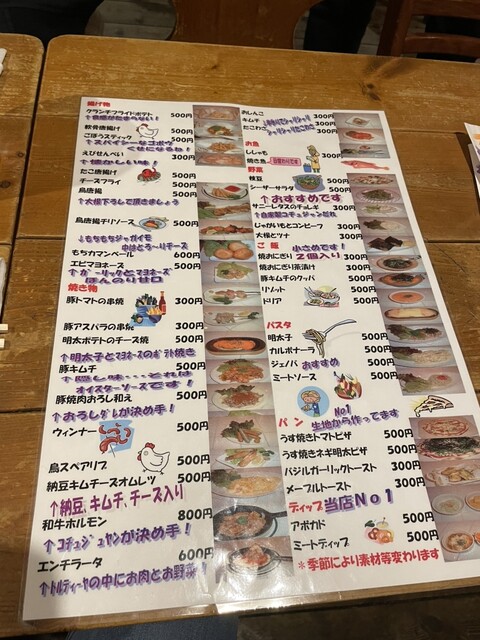 揚げ物
クランチフライドポテト 500円
↑食感がたまらない！
軟骨唐揚げ 500円
ごぼうスティック 500円
↑スパイシーなゴボウ
くせになるね！
えびせんべい 300円
↑懐かしい味！
たこ唐揚げ 500円
チーズフライ 500円
鳥唐揚 500円
↑大根下ろして頂きましょう
鳥唐揚チリソース 500円
↓もちもちジャガイモ
中はとろ〜りチーズ
もちカマンベール 600円
エビマヨネーズ 500円
↑ガーリックとマヨネーズ
ほんのり甘口
焼き物
豚トマトの串焼 300円
豚アスパラの串焼 300円
明太ポテトのチーズ焼 500円
↑明太子とマヨネーズのポテト焼き
豚キムチ 500円
↑隠し味...それは
オイスターソースです！
豚焼肉おろし和え 500円
↑おろしダレが決め手！
ウィンナー 500円
鳥スペアリブ 500円
納豆キムチチーズオムレツ 500円
↑納豆、キムチ、チーズ入り
和牛ホルモン 800円
↑コチュジャンが決め手！
エンチラータ 600円
↑トルティーヤの中にお肉とお野菜！
おしんこ 300円
キムチ 300円
たこわさ 300円
お魚
ししゃも 300円
焼き魚
野菜
枝豆 300円
シーザーサラダ 500円
↑おすすめです
サニーレタスのチョレギ 500円
↑自家製コチュジャンだれ
じゃがいもとコンビーフ 500円
大根とツナ 500円
ご飯 小さめです！
焼おにぎり ２個入り 300円
焼おにぎり茶漬け 300円
豚キムチのクッパ 500円
リゾット 500円
ドリア 500円
パスタ
明太子 500円
カルボナーラ 500円
ジェノバ おすすめ 500円
ミートソース 500円
パン No1
生地から作ってます
うす焼きトマトピザ 500円
うす焼きネギ明太ピザ 500円
バジルガーリックトースト 300円
メープルトースト 300円
ディップ 当店No1
アボカド 500円
ミートディップ 500円
＊季節により素材等変わります